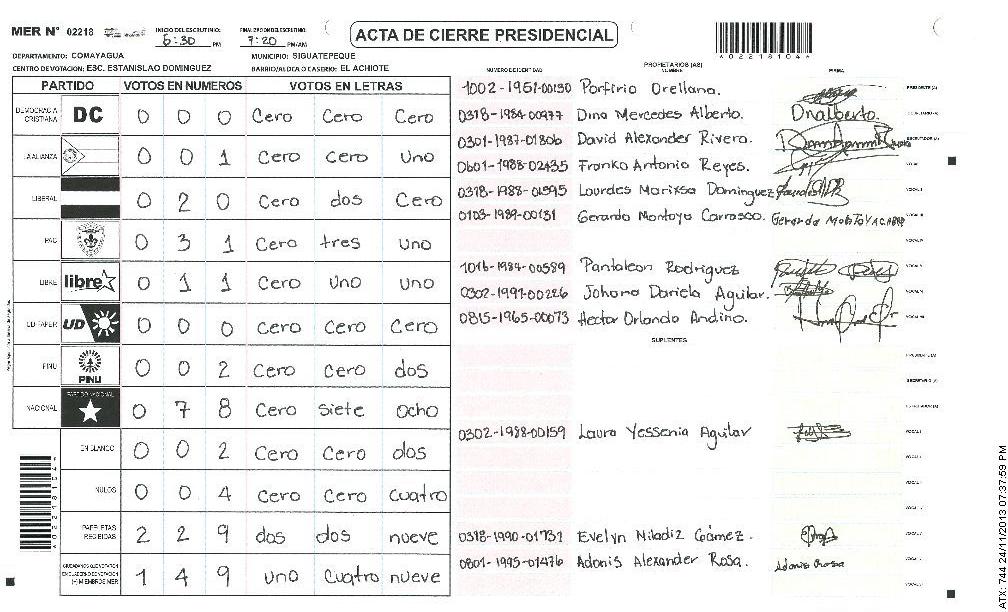 MER N° 02218
INICIO DEL ESCRUTINIO:
6:30 PM
FINALIZACION DEL ESCRUTINIO:
7:20 PM/AM
ACTA DE CIERRE PRESIDENCIAL
A02218104A
DEPARTAMENTO: COMAYAGUA
MUNICIPIO: SIGUATEPEQUE
CENTRO DE VOTACION: ESC. ESTANISLAO DOMINGUEZ
BARRIO/ALDEA O CASERIO: EL ACHIOTE
PARTIDO VOTOS EN NUMEROS VOTOS EN LETRAS
DEMOCRACIA CRISTIANA DC 0 0 0 Cero Cero Cero
LA ALIANZA 0 0 1 Cero Cero Uno
LIBERAL 0 2 0 Cero dos Cero
PAC 0 3 1 Cero tres uno
LIBRE libre 0 1 1 Cero Uno uno
UD FAPER UD 0 0 0 Cero Cero Cero
PINU PINU 0 0 2 Cero Cero dos
NACIONAL PARTIDO NACIONAL 0 7 8 Cero Siete Ocho
EN BLANCO 0 0 2 Cero Cero dos
NULOS 0 0 4 Cero Cero Cuatro
PAPELETAS RECIBIDAS 2 2 9 dos dos nueve
CIUDADANOS QUE VOTARON EN CUADERNO DE VOTACION (+) MIEMBROS MER 1 4 9 uno Cuatro nueve
NUMERO DE IDENTIDAD
PROPIETARIOS (AS)
NOMBRE
FIRMA
1002-1951-00130 Porfirio Orellana. PRESIDENTE (A)
0318-1984-00977 Dina Mercedes Alberto. Dnalberto. SECRETARIO (A)
0301-1987-01806 David Alexander Rivera. ESCRUTADOR (A)
0601-1988-02435 Franko Antonio Reyes.
0318-1988-01595 Lourdes Marixsa Dominguez
0103-1989-00131 Gerardo Montoya Carrasco.
1016-1984-00589 Pantaleon Rodriguez
0302-1991-00226 Johana Dariela Aguilar.
0815-1965-00073 Hector Orlando Andino.
SUPLENTES
PRESIDENTE (A)
SECRETARIO (A)
ESCRUTADOR (A)
0302-1988-00159 Laura Yessenia Aguilar
0318-1990-01731 Evelyn Niladiz Gámez.
0801-1995-01476 Adonis Alexander Rosa. Adonis Rosa
ATX: 744 24/11/2013 07:37:59 PM